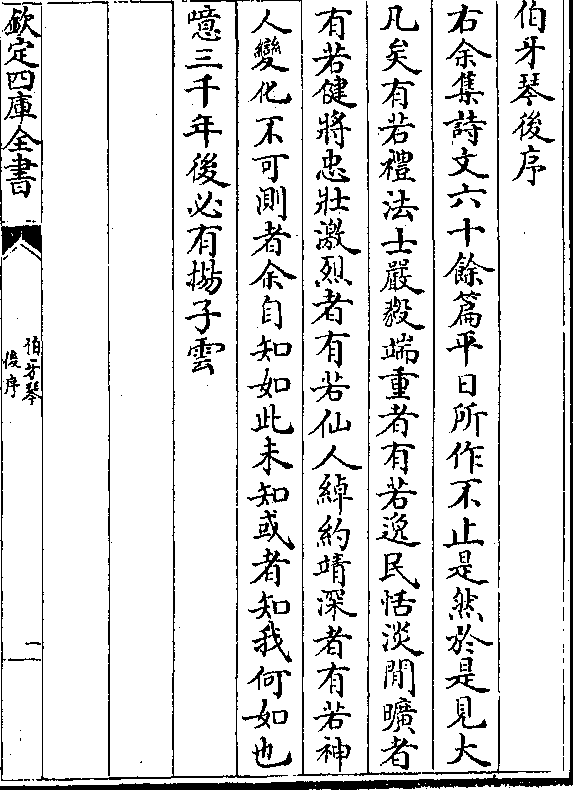 伯牙琴後序
右余集詩文六十餘篇平日所作不止是然於是見大
凡矣有若禮法士嚴毅端重者有若逸民恬淡閒曠者
有若健將忠壯激烈者有若仙人綽約靖深者有若神
人變化不可測者余自知如此未知或者知我何如也
噫三千年後必有揚子雲
欽定四庫全書
伯牙琴
後序
一